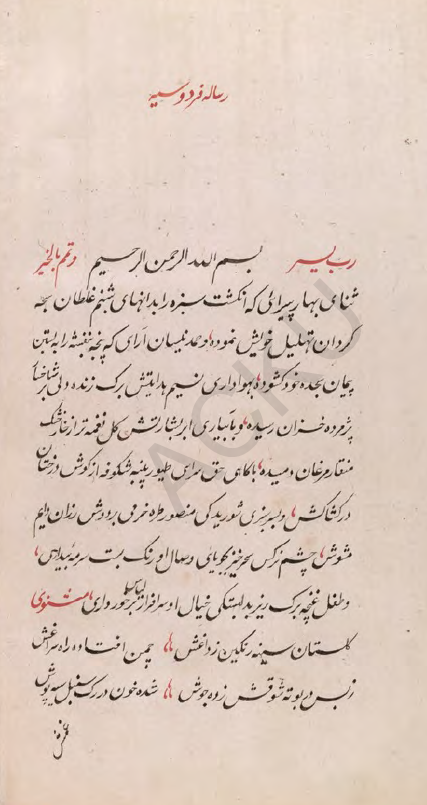 رساله فردوسیه
رب یسر بسم الله الرحمن الرحیم و تمم بالخیر
ثنای بهار پیرائی که انگشت سبزه را بدانهای شبنم غلطان سبحه
کردان تهلیل خویش نموده و حمد نیسان آرای که پنجه بنفشه را به بستن
پیمان بجده خود کشوده هواداری نسیم بدایتش برک زنده دلی بر شاخسار
پژمرده خزان رسیده و بآبیاری ابر بشارتش کل نغمه تر از خار خشک
منقار مرغان دمیده باکاهی حق سرای طیور پنبه شکوفه از کوش درختان
در کشاکش و بسرسبزی شوریدکی منصور طره خرمی بر دوش رندان دایم
مشوش چشم نرکس سحرخیز بجویای وصال او رنک بست سرمه بیداری
و طفل غنچه برک ریز بدلبستکی خیال او سرافراز لباس زر روای مثنوی
کلستان سینه رنکین ز داغش چمن افتاده راه سراغش
ز بس در بوته شوقش زده جوش شده خون در رک سنبل سیه پوش
AGKU